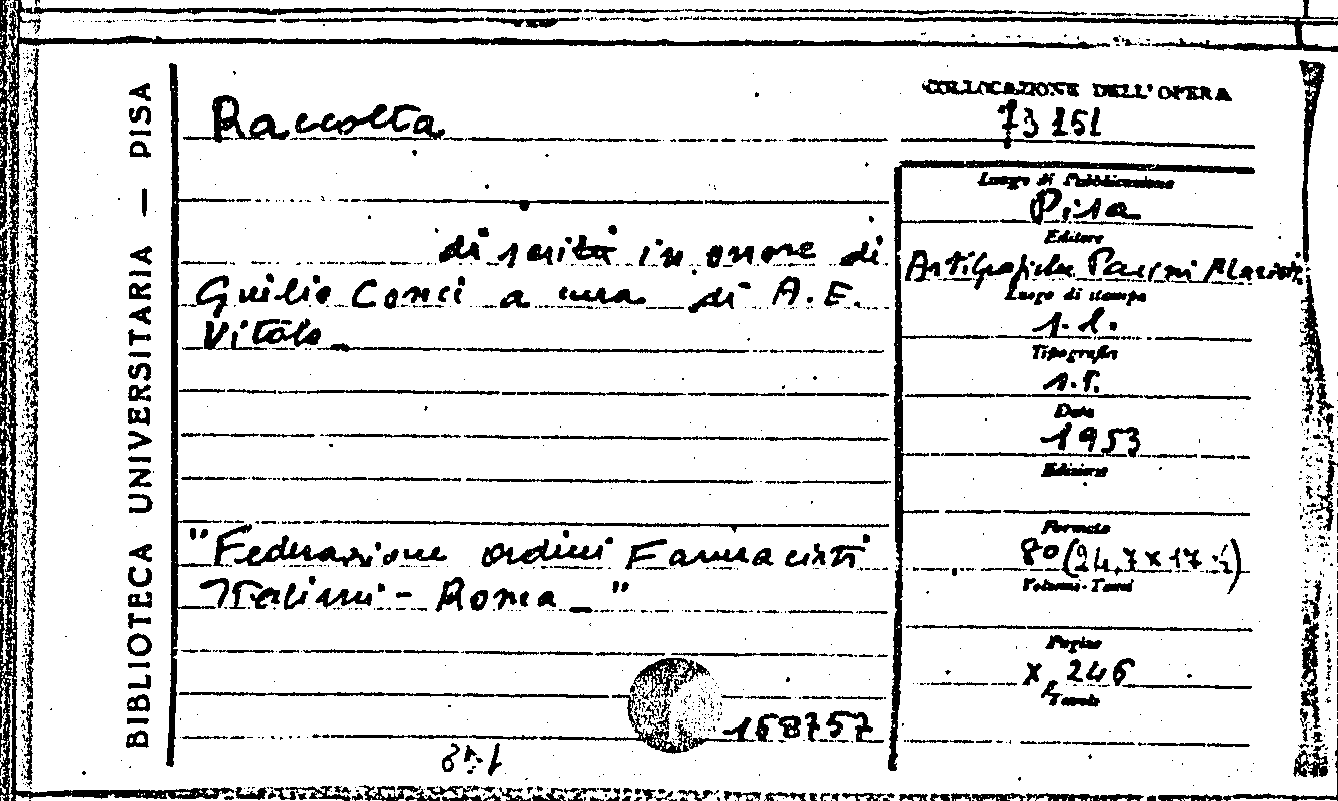 BIBLIOTECA UNIVERSITARIA — PISA
Raccolta
di scritti in onore di
Guilio Conci a cura di A.E.
Vitolo_
"Federazione ordini Farmacisti
Italiani - Roma_"
168757
COLLOCAZIONE DELL'OPERA
73 151
Luogo di Pubblicazione
Pisa
Editore
Arti Grafiche Pacini Mariotti
Luogo di stampa
s.l.
Tipografia
s.t.
Data
1953
Edizione
Formato
8o (24,7 x 17
Volumi-Tomi
Pagine
X, 246
Tavole